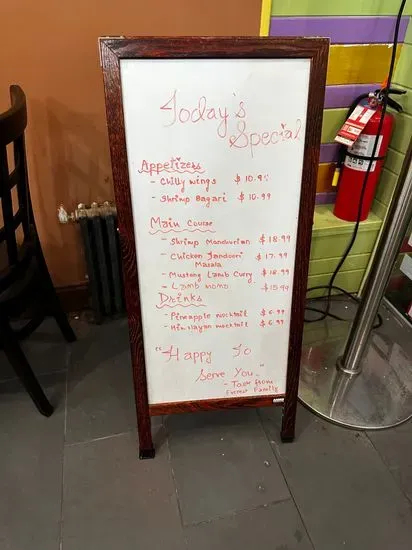 Today's
Special
Appetizers
- Chilly wings $ 10.99
- Shrimp Bagari $ 10.99
Main Course
- Shrimp Manchurian $ 18.99
- Chicken Tandoori $ 17.99
Masala
- Mustang Lamb Curry $ 18.99
- Lamb momo $ 15.99
Drinks
- Pineapple mocktail $ 6.99
- Himalayan mocktail $ 6.99
"Happy To
Serve You."
- Team from
Everest Family